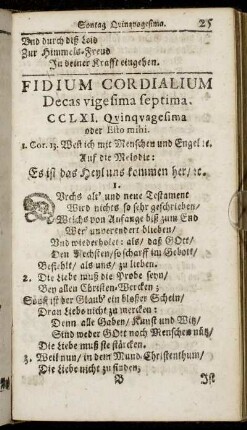 Sontag Qvinqvagesima. 25
Vnd durch diß Leid
Zur Himmels-Freud
In deiner Krafft eingehen.
FIDIUM CORDIALIUM
Decas vigesima septima.
CCLXI. Qvinqvagesima
oder Esto mihi.
1. Cor. 13. Wen ich mit Menschen und Engel ꝛc.
Auf die Melodie:
Es ist das Heyl uns kommen her/ ꝛc.
1.
DUrchs alt' und neue Testament
Wird nichts so sehr geschrieben/
Welchs von Anfange biß zum End
Wer' unverendert blieben/
Und wiederholet: als/ daß GOtt/
Den Nechsten/ so scharff im Gebott/
Befiehlt/ als uns/ zu lieben.
2. Die Liebe muß die Probe seyn/
Bey allen Christen-Wercken;
Sonst ist der Glaub' ein bloßer Schein/
Dran Liebs nicht zu mercken:
Denn alle Gaben/ Kunst und Witz/
Sind weder GOtt noch Menschen nütz/
Die Liebe muß sie stärcken.
3. Weil nun/ in dem Mund-Christenthum/
Die Liebe nicht zu finden;
Ist